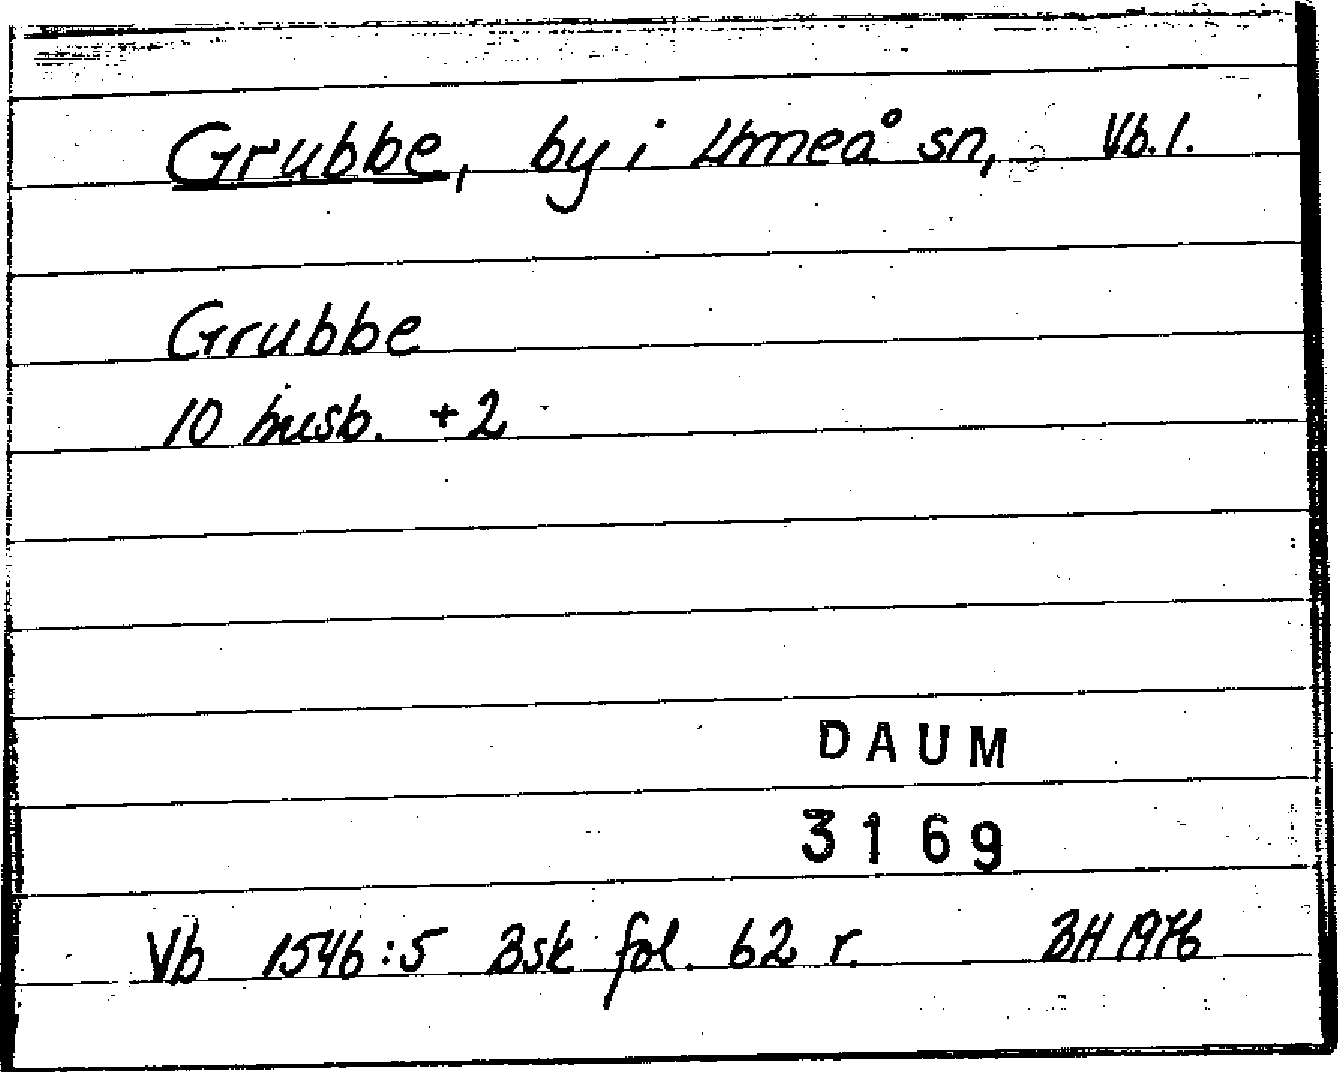 Grubbe, by i Umeå sn, Vb.l.
Grubbe
10 busb. +2
DAUM
3169
Vb 1546:5 Bsk fol. 62 r. BH 1976